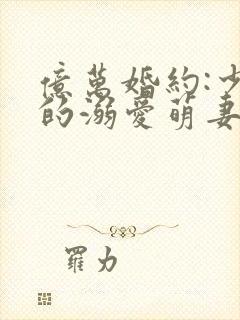 億萬婚約:少
的溺愛萌妻
羅力